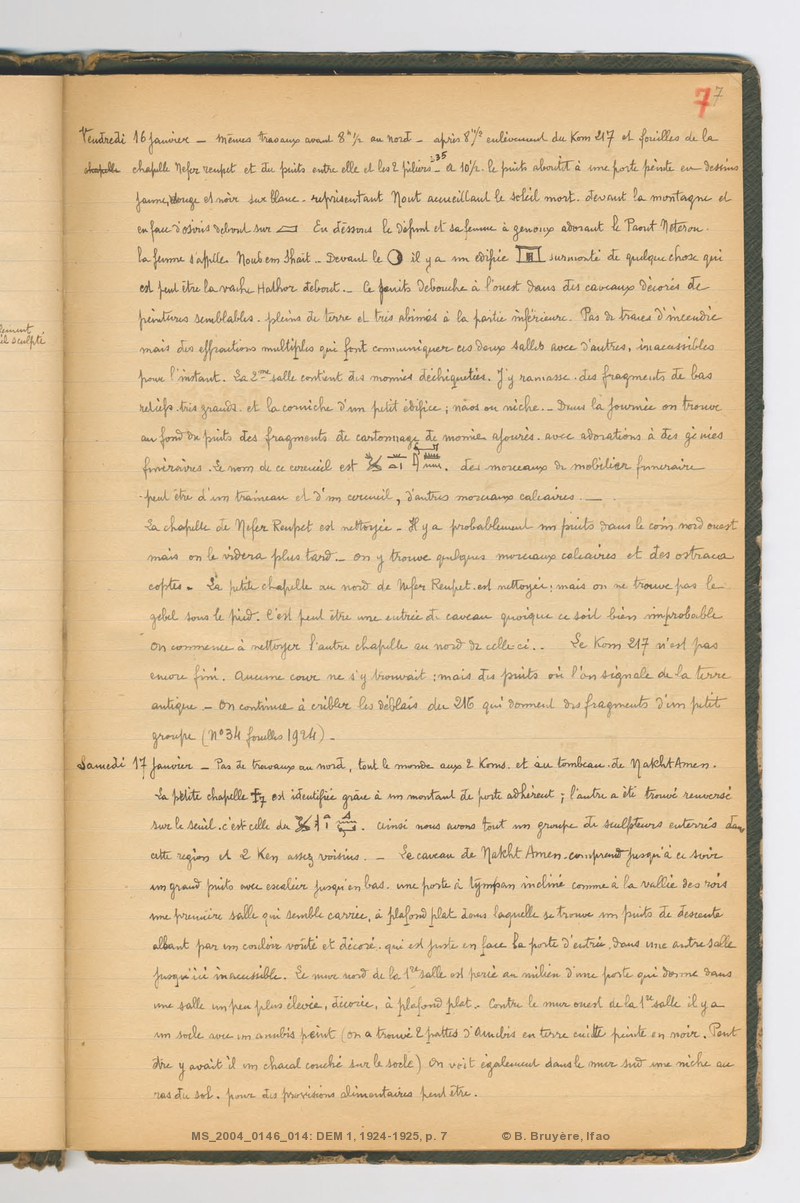 7 7
Vendredi 16 Janvier – Mêmes travaux avant 8h½ au nord – après 8h½ enlèvement du Kom 217 et fouilles de la
chapelle
chapelle Nefer renpet et du puits entre elle et les 2 piliers 235 – A 10½ le puits aboutit à une porte peinte en dessins
jaune, rouge et noir sur blanc – représentant Nout accueillant le soleil mort – devant la montagne et
en face d'osiris debout sur En dessous le défunt et sa femme à genoux adorant le Paout Neterou.
la femme s'appelle Noub em Shait – Devant le il y a un édifice surmonté de quelque chose qui
est peut être la vache Hathor debout. – Ce puits débouche à l'ouest dans des caveaux décorés de
peintures semblables – pleins de terre et très abîmés à la partie inférieure. Pas de traces d'incendie
mais des effractions multiples qui font communiquer ces deux salles avec d'autres, inaccessibles
pour l'instant. La 2me salle contient des momies déchiquetées. J'y ramasse des fragments de bas
reliefs très grands et la corniche d'un petit édifice ; naos ou niche. – Dans la journée on trouve
au fond du puits des fragments de cartonnage de momie ajourés avec adorations à des génies
funéraires. Le nom de ce cercueil est . des morceaux de mobilier funéraire
peut être d'un traineau et d'un cercueil, d'autres morceaux calcaires. —
La chapelle de Nefer Renpet est nettoyée – Il y a probablement un puits dans le coin nord ouest
mais on le videra plus tard. – On y trouve quelques morceaux calcaires et des ostraca
coptes – La petite chapelle au nord de Nefer Renpet est nettoyée ; mais on ne trouve pas le
gebel sous le pied. C'est peut être une entrée de caveau quoique ce soit bien improbable
On commence à nettoyer l'autre chapelle au nord de celle ci. – Le Kom 217 n'est pas
encore fini. Aucune cour ne s'y trouvait ; mais des puits où l'on signale de la terre
antique – On continue à cribler les déblais du 216 qui donnent des fragments d'un petit
groupe (N°34 fouilles 1924) –
Samedi 17 Janvier – Pas de travaux au nord, tout le monde aux 2 Koms et au tombeau de Nakht Amen.
La petite chapelle est identifiée grâce à un montant de porte adhérent ; l'autre a été trouvé renversé
sur le seuil – c'est celle du . Ainsi nous avons tout un groupe de sculpteurs enterrés dans
cette région et 2 Ken assez voisins. – Le caveau de Nakht Amen comprend jusqu'à ce soir
un grand puits avec escalier jusqu'en bas – une porte à tympan incliné comme à la vallée des rois
une première salle qui semble carrée, à plafond plat dans laquelle se trouve un puits de descente
allant par un couloir voûté et décoré – qui est juste en face la porte d'entrée, dans une autre salle
jusqu'ici inaccessible. Le mur nord de la 1re salle est percé au milieu d'une porte qui donne dans
une salle un peu plus élevée, décorée, à plafond plat. Contre le mur ouest de la 1re salle il y a
un socle avec un anubis peint (on a trouvé 2 pattes d'Anubis en terre cuite peinte en noir. Peut
être y avait il un chacal couché sur le socle) On voit également dans le mur sud une niche au
ras du sol – pour des provisions alimentaires peut être.
il sculpté
MS_2004_0146_014: DEM 1, 1924-1925, p. 7 © B. Bruyère, Ifao